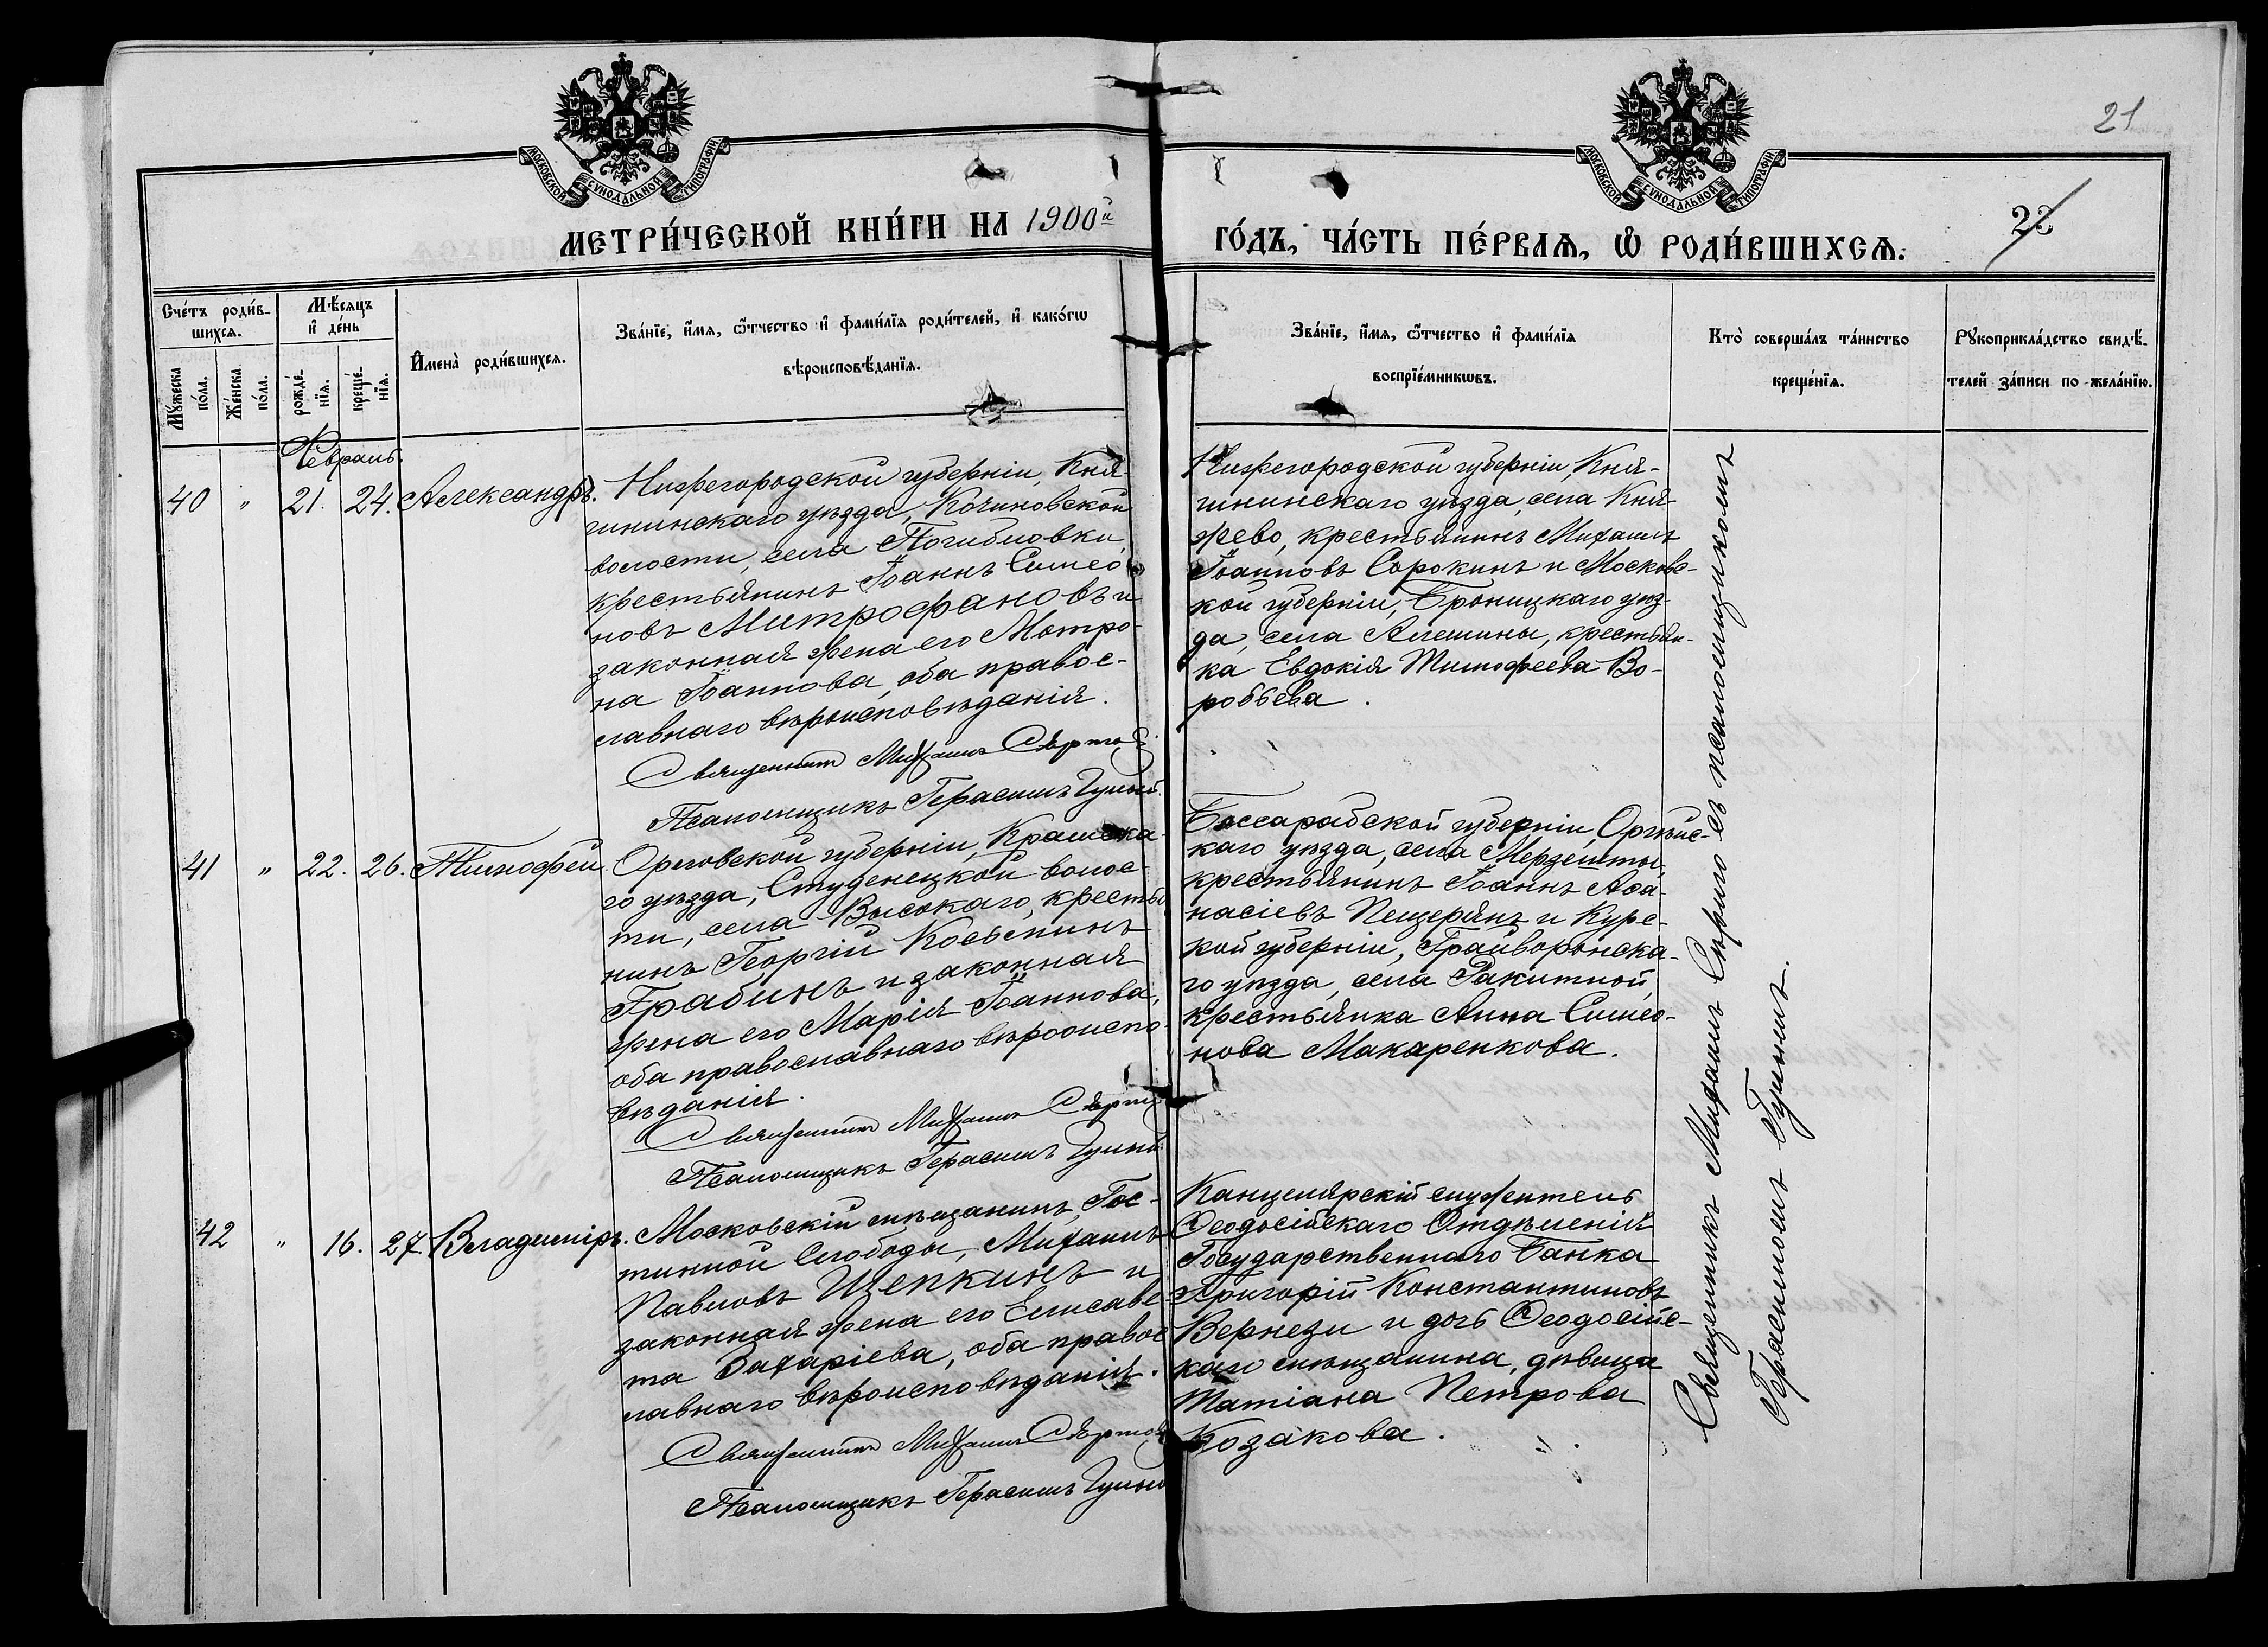 МОСКОВСКОЙ СѴНОДАЛЬНОЙ ТИПОГРАФІИ
МОСКОВСКОЙ СѴНОДАЛЬНОЙ ТИПОГРАФІИ
21
23
МЕТРИ́ЧЕСКОЙ КНИ́ГИ НА 1900й
ГО́ДЪ, ЧА́СТЬ ПЕ́РВАѦ, Ѿ РОДИ́ВШИХСѦ.
Сче́тъ роди́в-
шихсѧ.
Мꙋ́жеска
по́ла.
Же́нска
по́ла.
Мѣ́сѧцъ
и҆ де́нь
рожде́-
нїѧ.
креще́-
нїѧ.
И҆мена̀ роди́вшихсѧ.
Зва́нїе, и҆́мѧ, ѻ҆́тчество и҆ фами́лїѧ роди́телей, и҆ како́гѡ
вѣроисповѣ́данїѧ.
Зва́нїе, и҆́мѧ, ѻ҆́тчество и҆ фами́лїѧ
воспрїе́мникѡвъ.
Кто̀ соверша́лъ та́инство
креще́нїѧ.
Рꙋкоприкла́дство свидѣ́-
телей за́писи по жела́нїю.
Февраль.
40 " 21. 24. Александръ.
Нижегородской губерніи, Кня-
гининскаго уѣзда, Кочиновской
волости, села Погибловки,
крестьянинъ Іоаннъ Симео-
новъ Митрофановъ и
законная жена его Матро-
на Іоаннова, оба правос-
лавнаго вѣроисповѣданія.
Священникъ Михаилъ
Псаломщикъ Герасимъ
Нижегородской губерніи, Кня-
гининскаго уѣзда, села Кня-
жево, крестьянинъ Михаилъ
Іоанновъ Сорокинъ и Московс-
кой губерніи, Броницкаго уѣз-
да, села Алешины, крестьян-
ка Евдокія Тимофеева Во-
робьева.
41 " 22. 26. Тимофей
Орловской губерніи, Крамска-
го уѣзда, Студенецкой волос-
ти, села Высокаго, крестья
нинъ Георгій Косьминъ
Грабинъ и законная
жена его Марія Іоаннова,
оба православнаго вѣроиспо-
вѣданія.
Священникъ Михаилъ
Псаломщикъ Герасимъ
Бессарабской губерніи, Оргѣйс-
каго уѣзда, села Мерзешты,
крестьянинъ Іоаннъ Аѳа-
насіевъ Пещерянъ и Курс-
кой губерніи, Грайворонска-
го уѣзда, села Ракитной,
крестьянка Анна Симео-
нова Макаренкова.
42 " 16. 27. Владиміръ.
Московскій мѣщанинъ, Гос-
тинной Слободы, Михаилъ
Павловъ Щепкинъ и
законная жена его Елисаве-
та Захаріева, оба правос
лавнаго вѣроисповѣданія.
Священникъ Михаилъ
Псаломщикъ Герасимъ
Канцелярскій служитель
Ѳеодосійскаго Отдѣленія
Государственнаго Банка
Григорій Константиновъ
Вернези и дочь Ѳеодосійс-
каго мѣщанина, дѣвица
Татіана Петрова
Козакова.
Священникъ Михаилъ съ псаломщикомъ
Герасимомъ